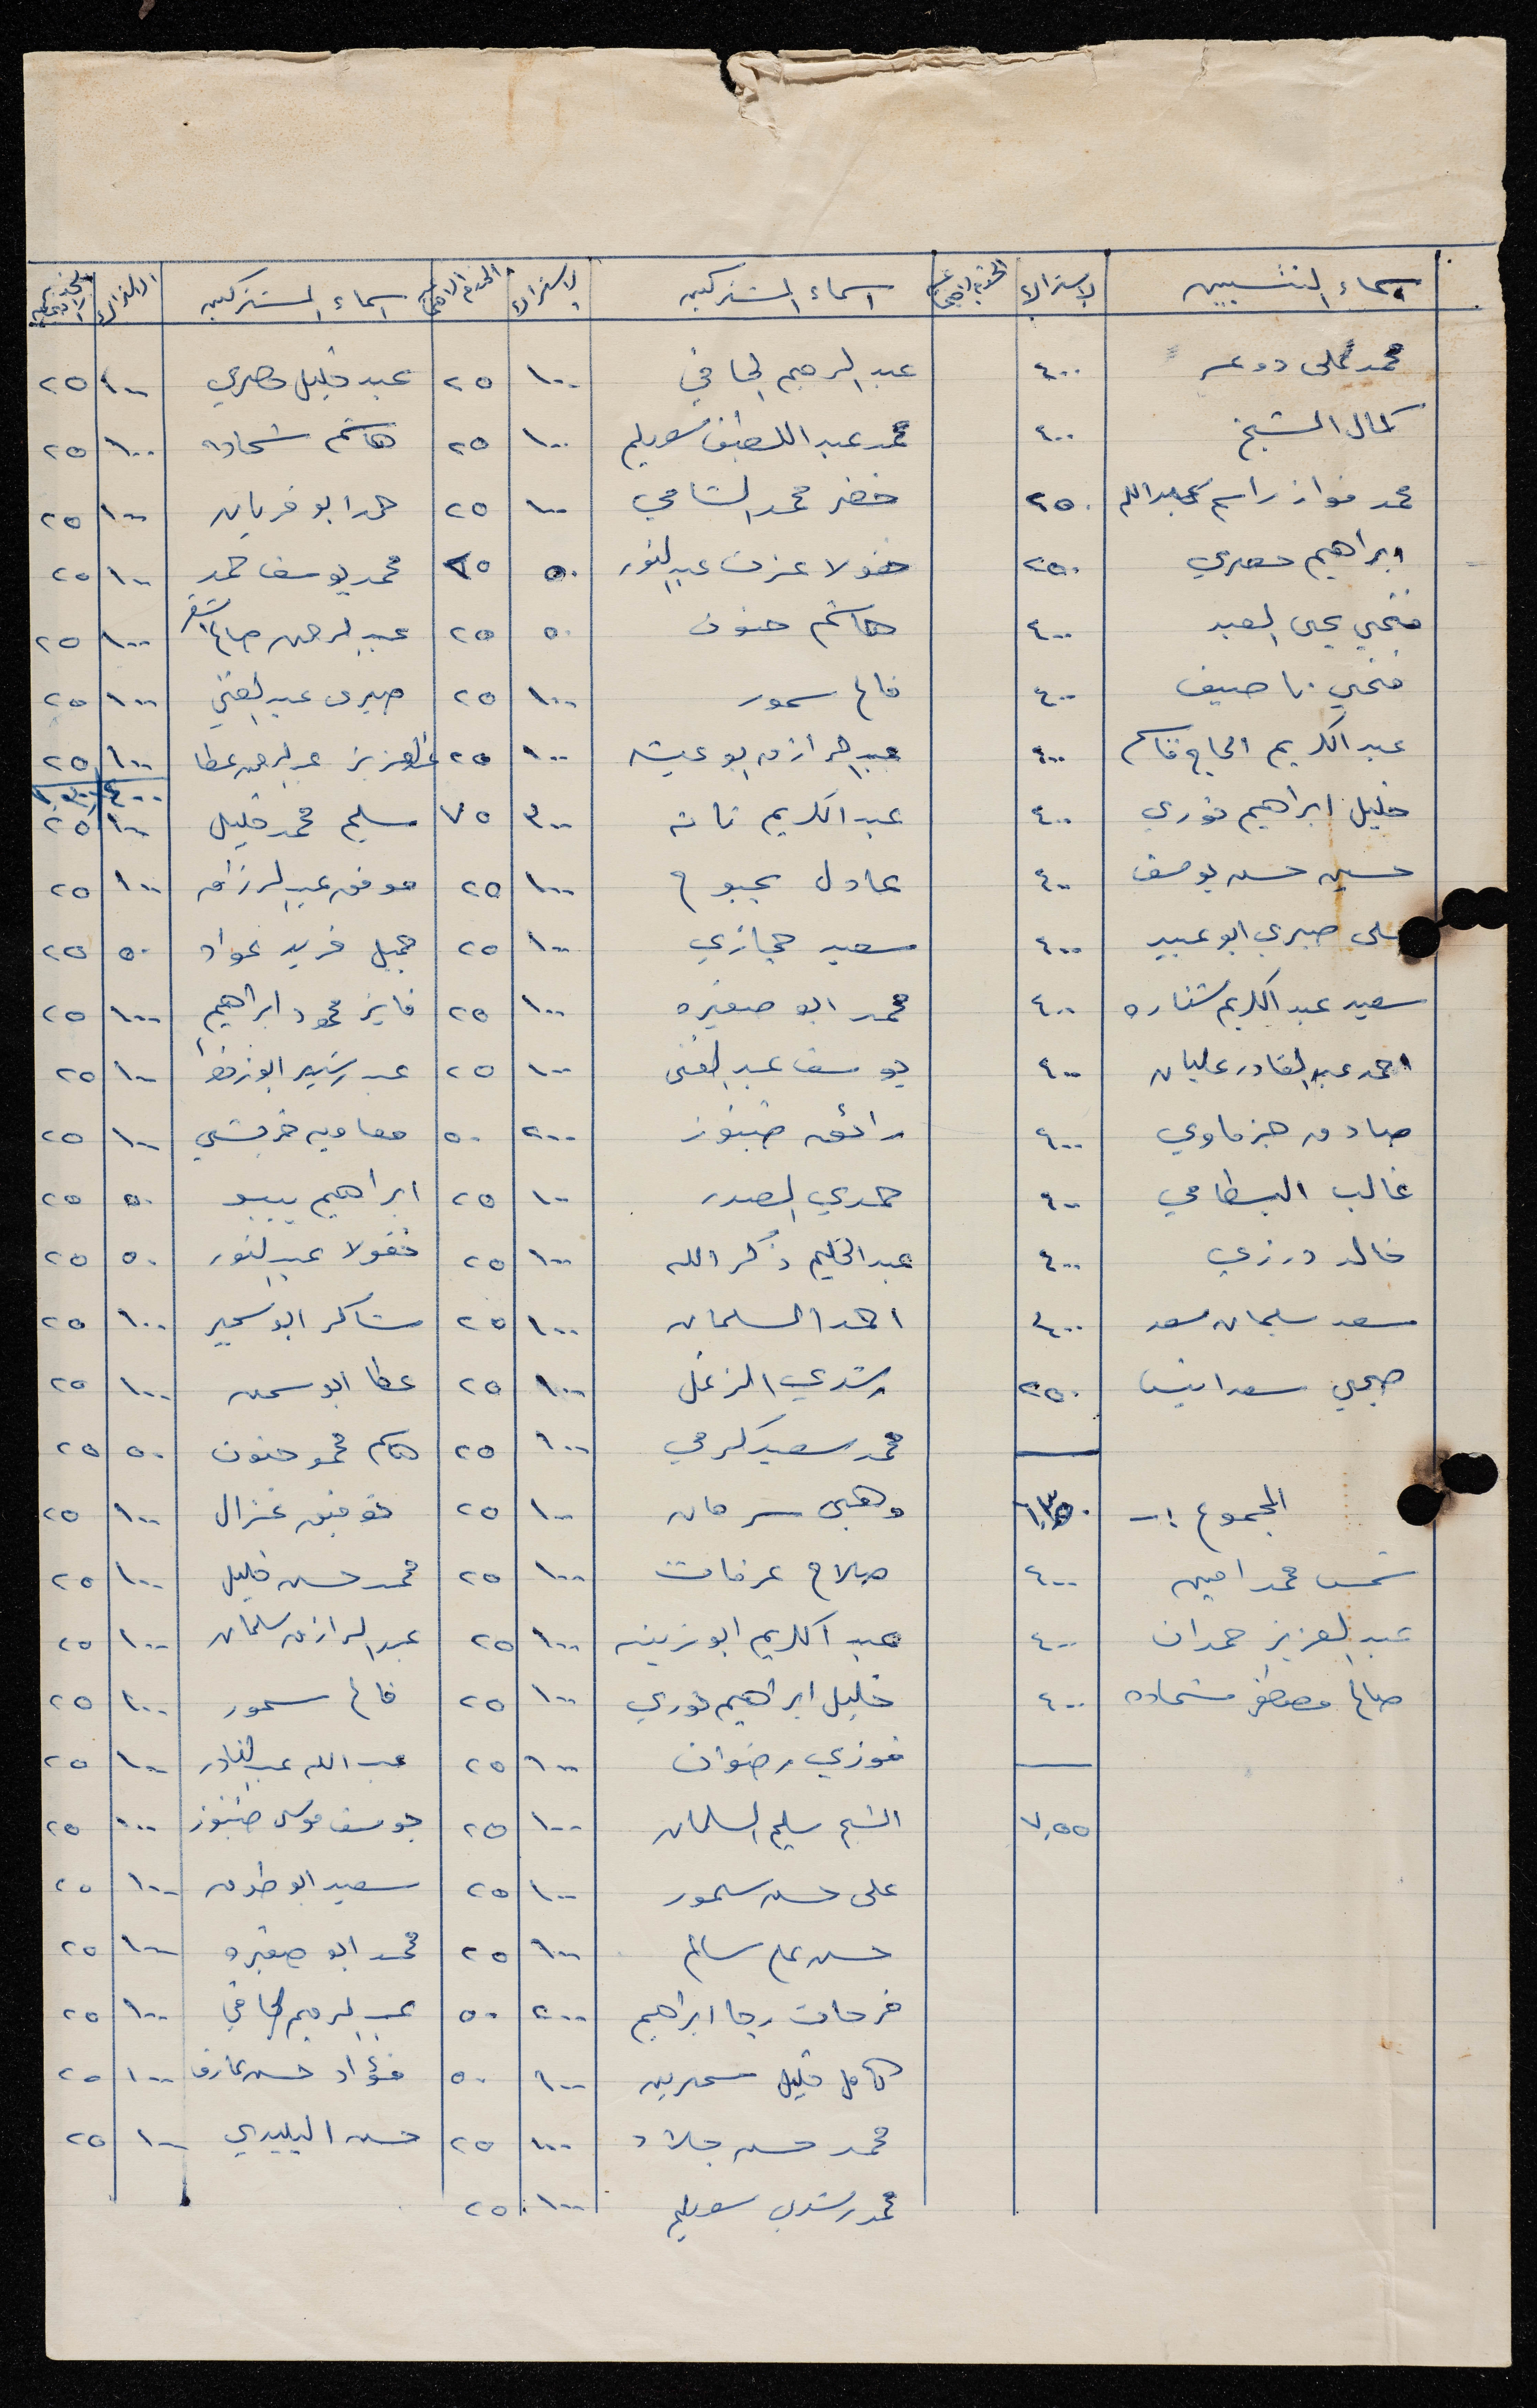 اسماء المنتسبين الاشتراك اسماء المشتركين الاشتراك اسماء المشتركين الاشتراك
محمد علي دوعر ٤٠٠ عبد الرحيم الحافي ١٠٠ ٢٥ عبد خليل مصري ١٠٠ ٢٥
كمال الشيخ ٤٠٠ محمد عبد اللطيف سويلم ١٠٠ ٢٥ هاشم شحاده ١٠٠ ٢٥
محمد فواز راسم عبد الله ٢٥٠ خضر محمد الشامي ١٠٠ ٢٥ حمد ابو فربان ١٠٠ ٢٥
ابراهيم مصري ٢٥٠ نقولا عزت عبد النور ٥٠ ٢٥ محمد يوسف حمد ١٠٠ ٢٥
فتحي يحيى العبد ٤٠٠ هاشم حنون ٥٠ ٢٥ عبد الرحمن صالح ١٠٠ ٢٥
فتحي ناصيف ٤٠٠ فالح سمور ١٠٠ ٢٥ صبري عبد الغني ١٠٠ ٢٥
عبد الكريم الحاج قاسم ٤٠٠ عبد الرازق ابو عيشه ١٠٠ ٢٥ عبد العزيز عبد الرحمن عطا ١٠٠ ٢٥
خليل ابراهيم خوري ٤٠٠ عبد الكريم ٣٠٠ ٧٥ سليم محمد خليل ١٠٠ ٢٥
حسين حسن يوسف ٤٠٠ عادل بحبوح ١٠٠ ٢٥ موفق عبد الرزاق ١٠٠ ٢٥
علي صبري ابو عبيد ٤٠٠ سعيد حجازي ١٠٠ ٢٥ جميل فريد عواد ٥٠ ٢٥
سعيد عبد الكريم شناره ٤٠٠ محمد ابو صغيره ١٠٠ ٢٥ فايز محمود ابراهيم ١٠٠ ٢٥
احمد عبد القادر عليان ٤٠٠ يوسف عبد الغني ١٠٠ ٢٥ عبد رشيد ١٠٠ ٢٥
صادق هزماوي ٤٠٠ رائق ضبنوز ٢٠٠ ٥٠ معاويه خريشي ١٠٠ ٢٥
غالب البسطامي ٤٠٠ حمدي الصدر ١٠٠ ٢٥ ابراهيم بيبو ٥٠ ٢٥
خالد درزي ٤٠٠ عبد الحليم ذكر الله ١٠٠ ٢٥ نقولا عبد النور ٥٠ ٢٥
سعد سليمان سعد ٤٠٠ احمد السلمان ١٠٠ ٢٥ شاكر ابو سمير ١٠٠ ٢٥
صبحي سعد انيس ٢٥٠ رشدي الزغل ١٠٠ ٢٥ عطا ابو سمن ١٠٠ ٢٥
محمد سعيد كرمي ١٠٠ ٢٥ هاشم محمود حنون ٥٠ ٢٥
المجموع :- ٦,٣٥٠ وهبي سرحان ١٠٠ ٢٥ توفيق غزال ١٠٠ ٢٥
شمس محمد امين ٤٠٠ صلاح عرفات ١٠٠ ٢٥ محمد حسن خليل ١٠٠ ٢٥
عبد العزيز حمدان ٤٠٠ عبد الكريم ابو زينه ١٠٠ ٢٥ عبد الرازق سلمان ١٠٠ ٢٥
صالح مصطفى شحاده ٤٠٠ خليل ابراهيم خوري ١٠٠ ٢٥ فالح سمور ١٠٠ ٢٥
فوزي رضوان ١٠٠ ٢٥ عبد الله عبد القادر ١٠٠ ٢٥
٧,٥٥ الشيخ سليم السلمان ١٠٠ ٢٥ يوسف موسى ضبنوز ١٠٠ ٢٥
علي حسن سمور ١٠٠ ٢٥ سعيد ابو طوق ١٠٠ ٢٥
حسن علي سالم ١٠٠ ٢٥ محمد ابو صغيره ١٠٠ ٢٥
فرحات رجا ابراهيم ٢٠٠ ٥٠ عبد الرحيم الحافي ١٠٠ ٢٥
كامل خليل سمرين ١٠٠ ٥٠ فؤاد حسن عارف ١٠٠ ٢٥
محمد حسن جلاد ١٠٠ ٢٥ حسن البليدي ١٠٠ ٢٥
محمد رشدي سويلم ١٠٠ ٢٥